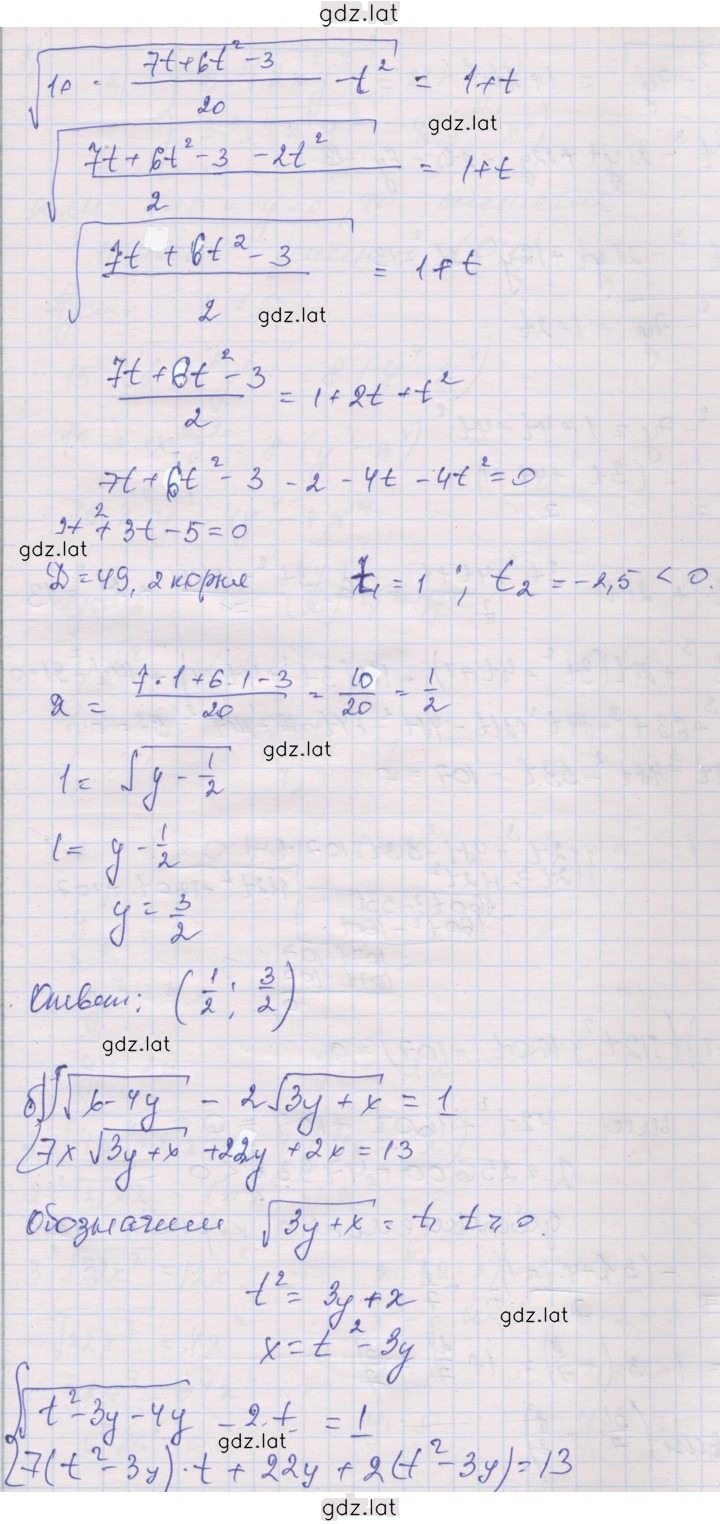 gdz.lat
√(10 · (7t+6t²-3)/20 - t²) = 1+t
gdz.lat
√((7t+6t²-3-2t²)/2) = 1+t
√((7t+6t²-3)/2) = 1+t
gdz.lat
(7t+6t²-3)/2 = 1+2t+t²
7t+6t²-3-2-4t-4t²=0
2t²+3t-5=0
gdz.lat
D=49, 2 корня t₁=1; t₂=-2,5<0.
x = (7·1+6·1-3)/20 = 10/20 = 1/2
gdz.lat
1 = √(y - 1/2)
1 = y - 1/2
y = 3/2
Ответ: (1/2; 3/2)
gdz.lat
б) { √(x-4y) - 2√(3y+x) = 1
7x√(3y+x) + 22y + 2x = 13
Обозначим √(3y+x) = t, t≥0.
t² = 3y+x
gdz.lat
x = t²-3y
{ √(t²-3y-4y) - 2·t = 1
gdz.lat
7(t²-3y)·t + 22y + 2(t²-3y) = 13
gdz.lat